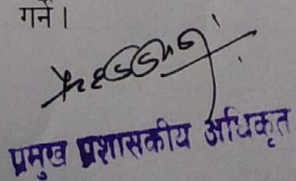 गर्ने।
प्रमुख प्रशासकीय अधिकृत